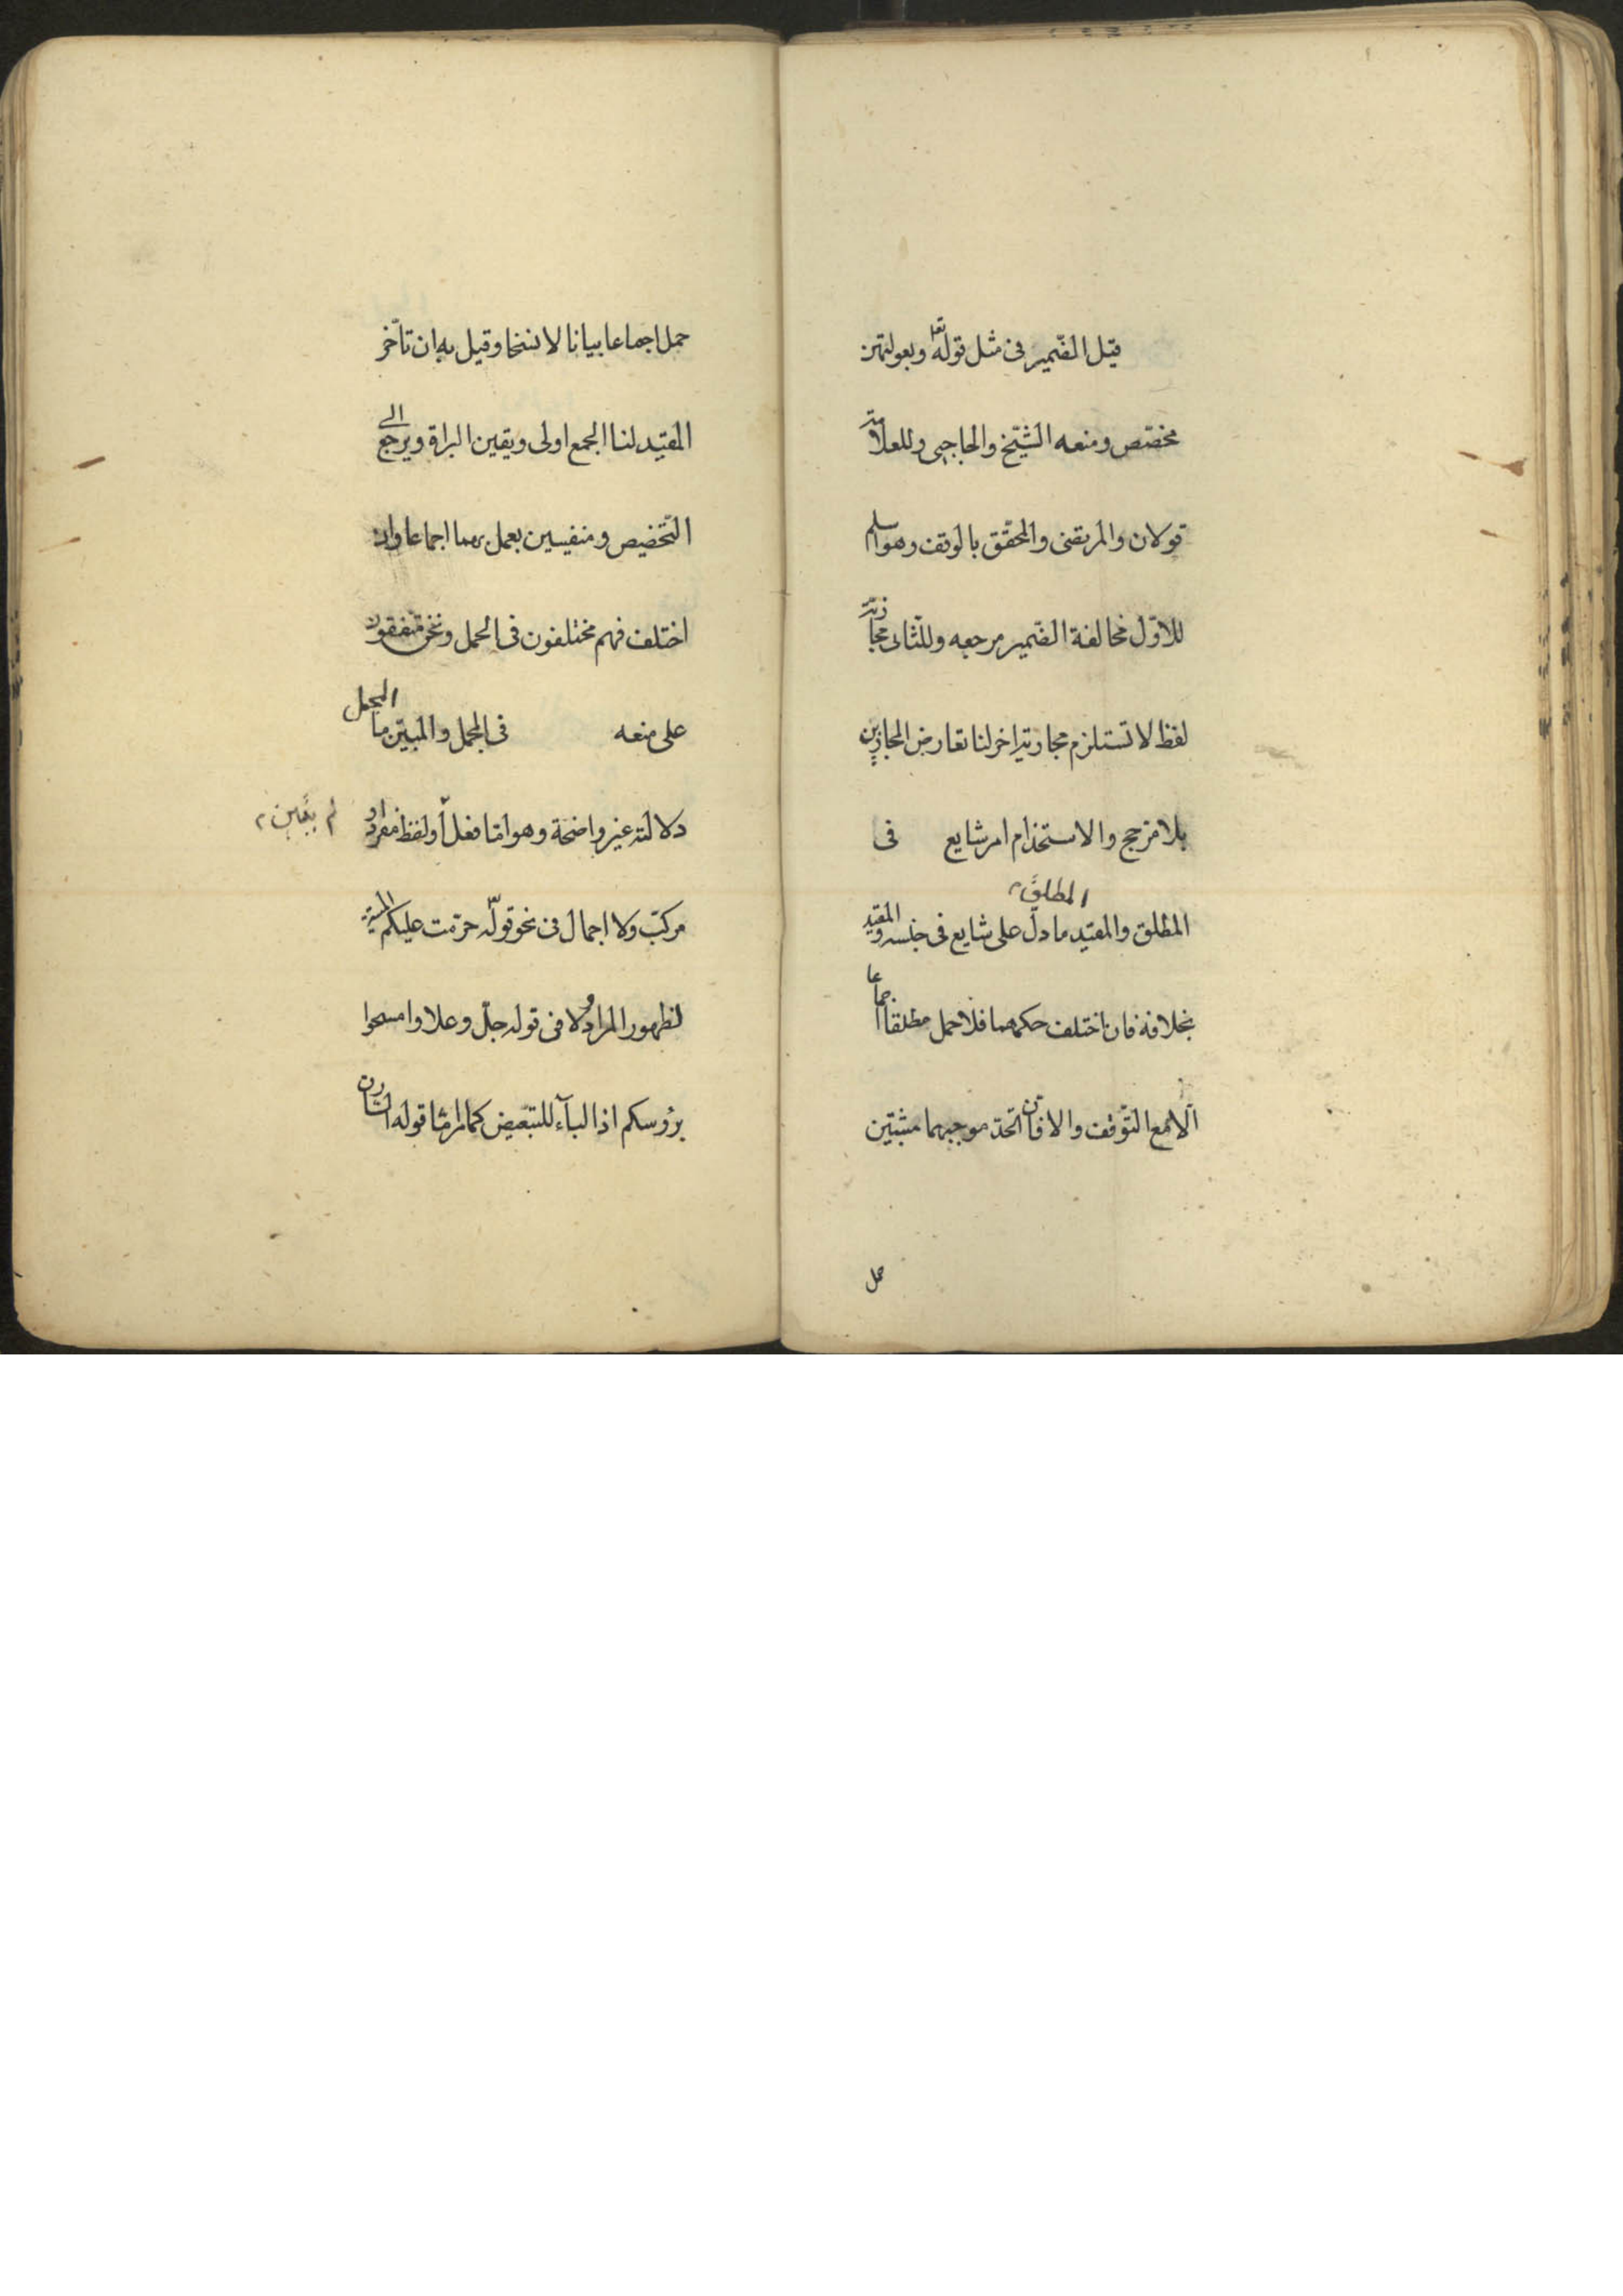 قيل الضمير في مثل قوله تعا وبعولتهن
مخصّص ومنعه الشّيخ والحاجبي وللعلامة
قولان والمرتضى والمحقّق بالوقف وهو اسلم
للاوّل مخالفة الضّمير مرجعه وللثّاني مجازيّة
لفظ لا تستلزم مجازيّة اخر لنا تعارض المجازين
بلا مرجح والاستخدام امر شايع في
المطلق
المطلق والمقيّد ما دلّ على شايع في جنسه والمقيد
بخلافه فان اختلف حكمهما فلا حمل مطلقا اجماعا
الّا مع التّوقّف والا فان اتّحد موجبهما مثبتين
حمل
حمل اجماعا بيانا لا نسخا وقيل به ان تأخّر
المقيّد لنا الجمع اولى ويقين البراة ويرجع الى
التّخصيص ومنفيين يعمل بهما اجماعا وان
اختلف فهم مختلفون في الحمل ونحن متّفقون
على منعه في المجمل والمبيّن المجمل ما
دلالته غير واضحة وهو امّا فعل او لفظ مفرد او
مركّب ولا اجمال في نحو قوله حرّمت عليكم الميتة
لظهور المراد ولا في قوله جلّ وعلا وامسحوا
برؤسكم اذ الباء للتبعيض كما مرّ